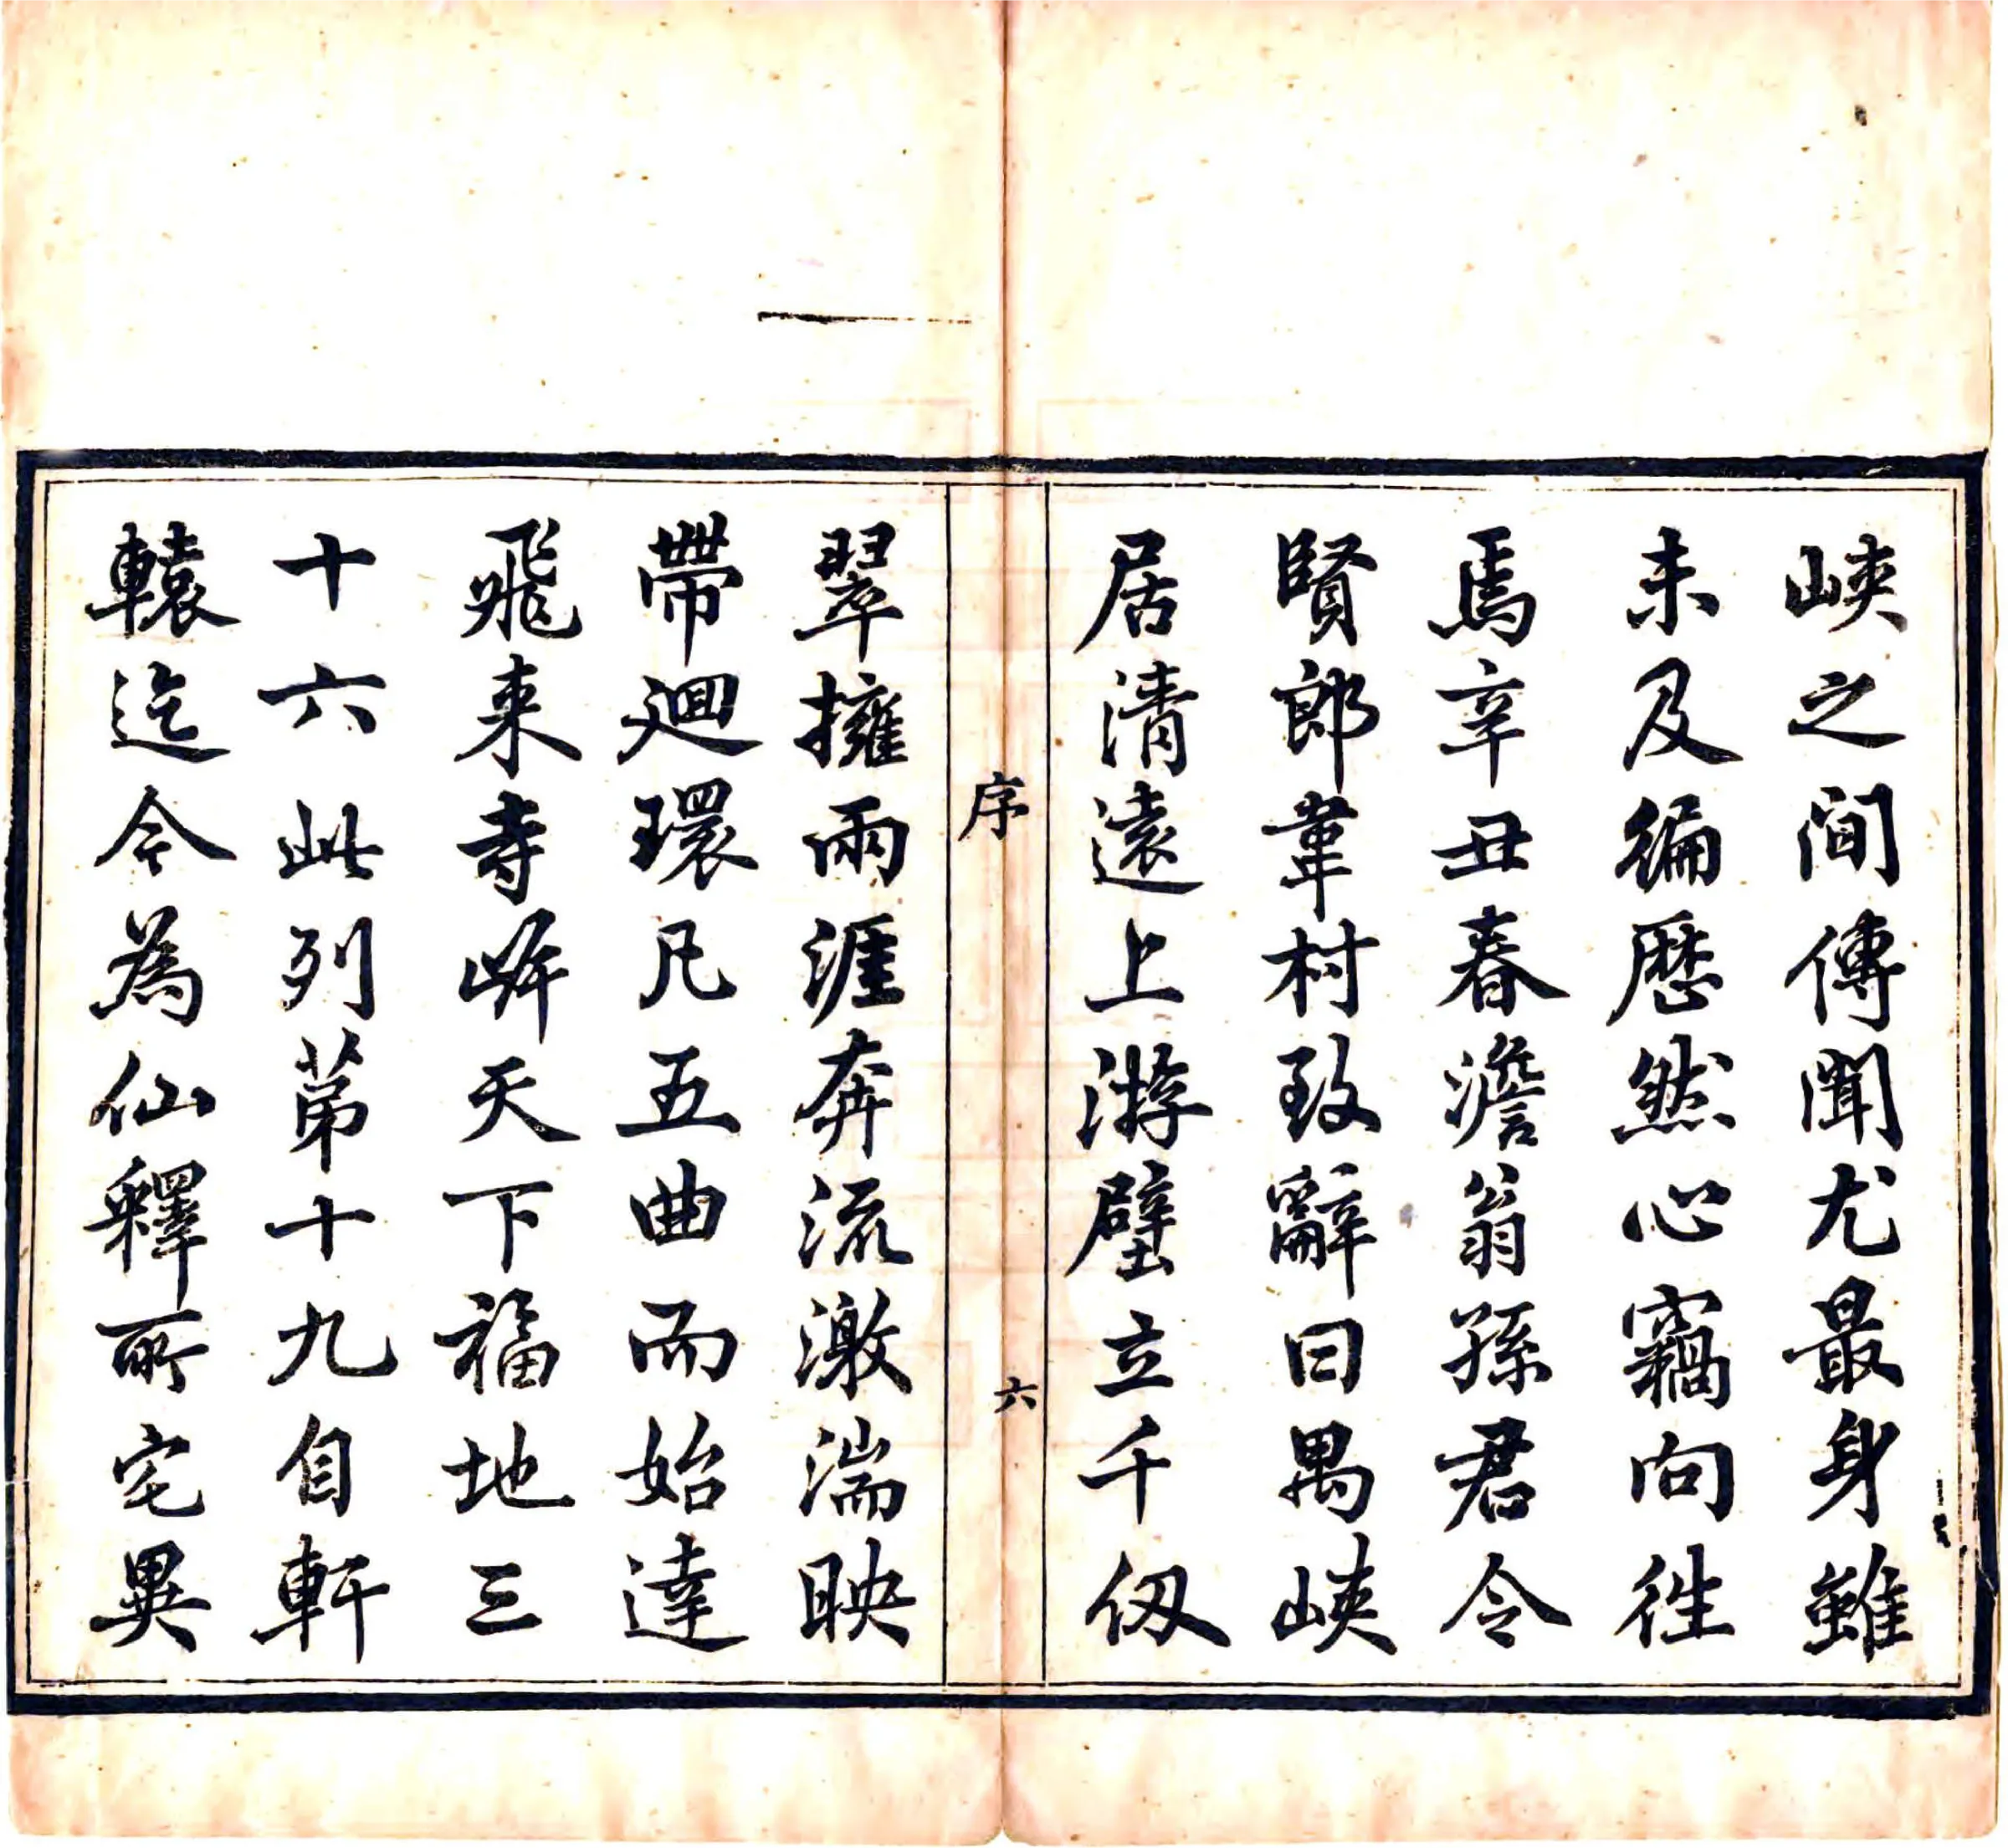 峽之間傳聞尤最身雖
未及徧歷然心竊向徃
焉辛丑春澹翁孫君令
賢郎葦村致辭曰禺峽
居清遠上游壁立千仭
序
六
翠擁兩涯奔流激湍映
帶廻環凡五曲而始達
飛来寺焉天下福地三
十六此列第十九自軒
轅迄今為仙釋所宅異